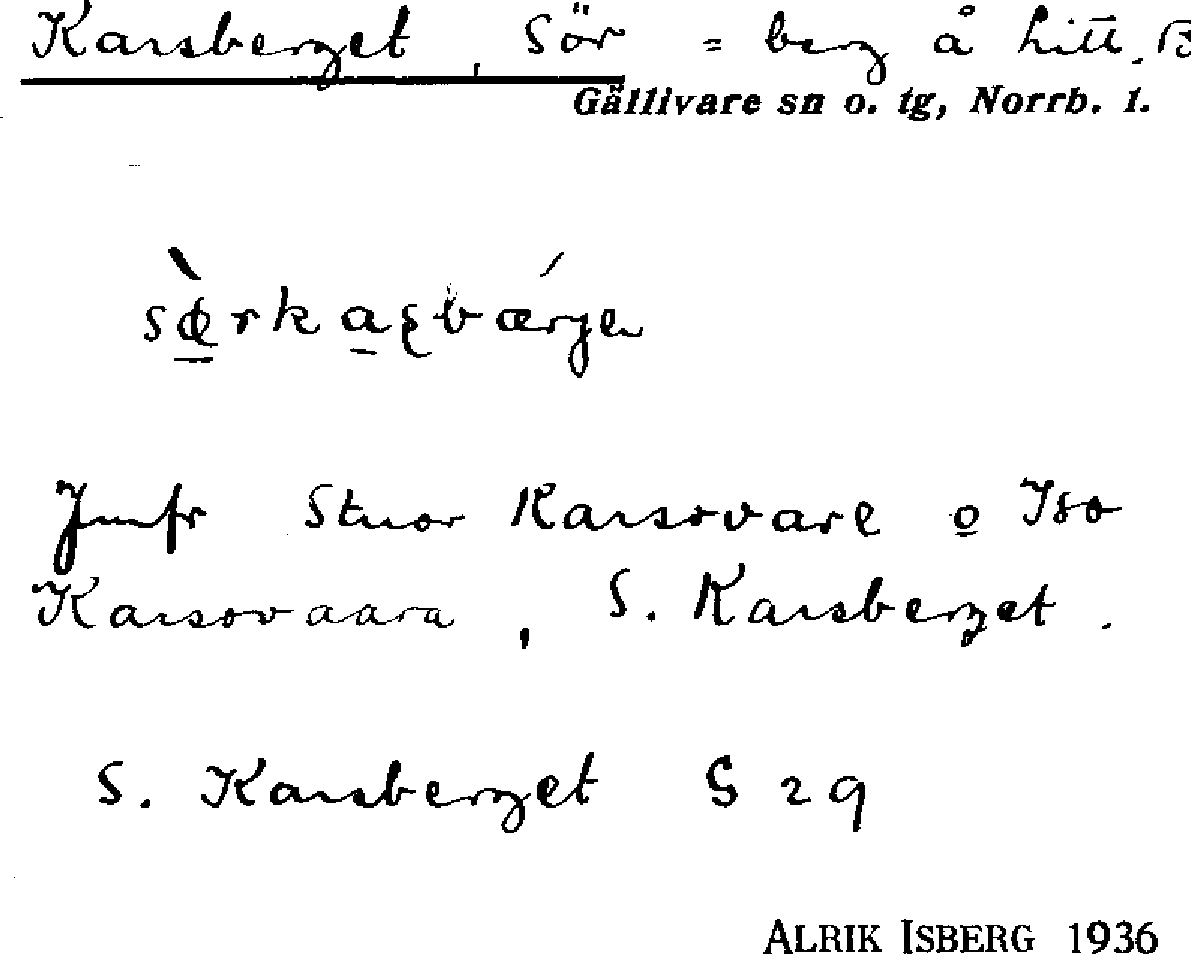 Karsberget, Sör = berg å litt. B
Gällivare sn o. tg, Norrb. l.
Jmfr Stuor Karsovare o Iso
Karsovaara, S. Karsberget.
S. Karsberget S 29
ALRIK ISBERG 1936